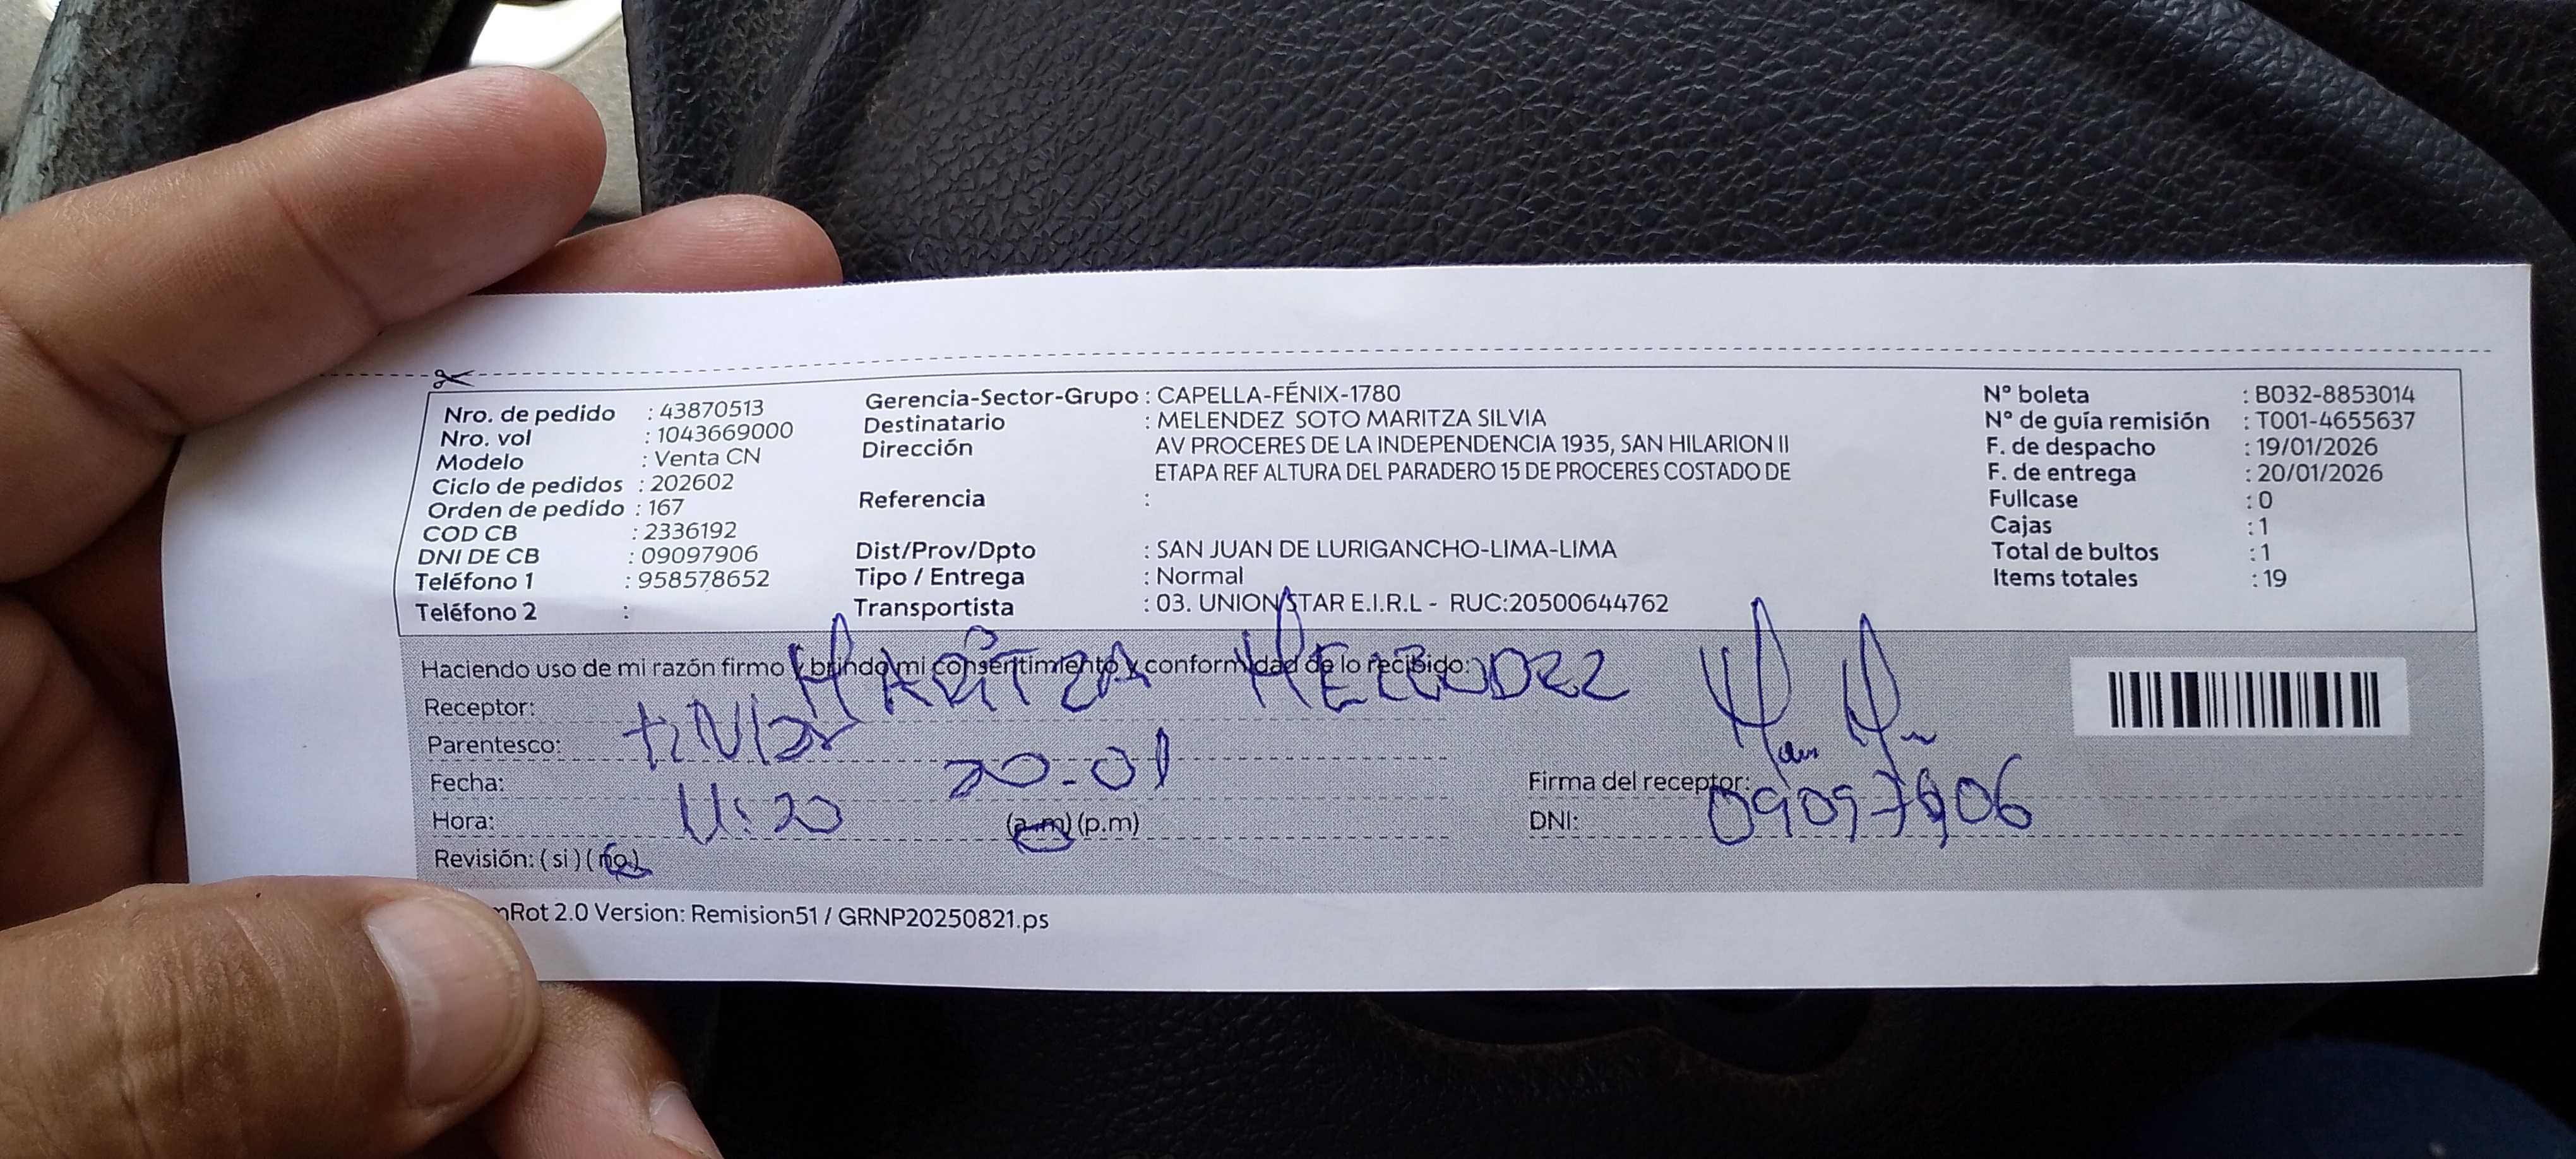 Nro. de pedido : 43870513
Nro. vol : 1043669000
Modelo : Venta CN
Ciclo de pedidos : 202602
Orden de pedido : 167
COD CB : 2336192
DNI DE CB : 09097906
Teléfono 1 : 958578652
Teléfono 2 :
Gerencia-Sector-Grupo : CAPELLA-FÉNIX-1780
Destinatario : MELENDEZ SOTO MARITZA SILVIA
Dirección AV PROCERES DE LA INDEPENDENCIA 1935, SAN HILARION II
ETAPA REF ALTURA DEL PARADERO 15 DE PROCERES COSTADO DE
Referencia :
Dist/Prov/Dpto : SAN JUAN DE LURIGANCHO-LIMA-LIMA
Tipo / Entrega : Normal
Transportista : 03. UNION STAR E.I.R.L - RUC:20500644762
Nº boleta : B032-8853014
Nº de guía remisión : T001-4655637
F. de despacho : 19/01/2026
F. de entrega : 20/01/2026
Fullcase : 0
Cajas : 1
Total de bultos : 1
Items totales : 19
Haciendo uso de mi razón firmo y brindo mi consentimiento y conformidad de lo recibido:
Receptor: MARITZA
Parentesco:
Fecha: 20-01
Hora: 11:20 (a.m) (p.m)
Revisión: ( si ) ( no )
Firma del receptor:
DNI: 09097906
Rot 2.0 Version: Remision51 / GRNP20250821.ps